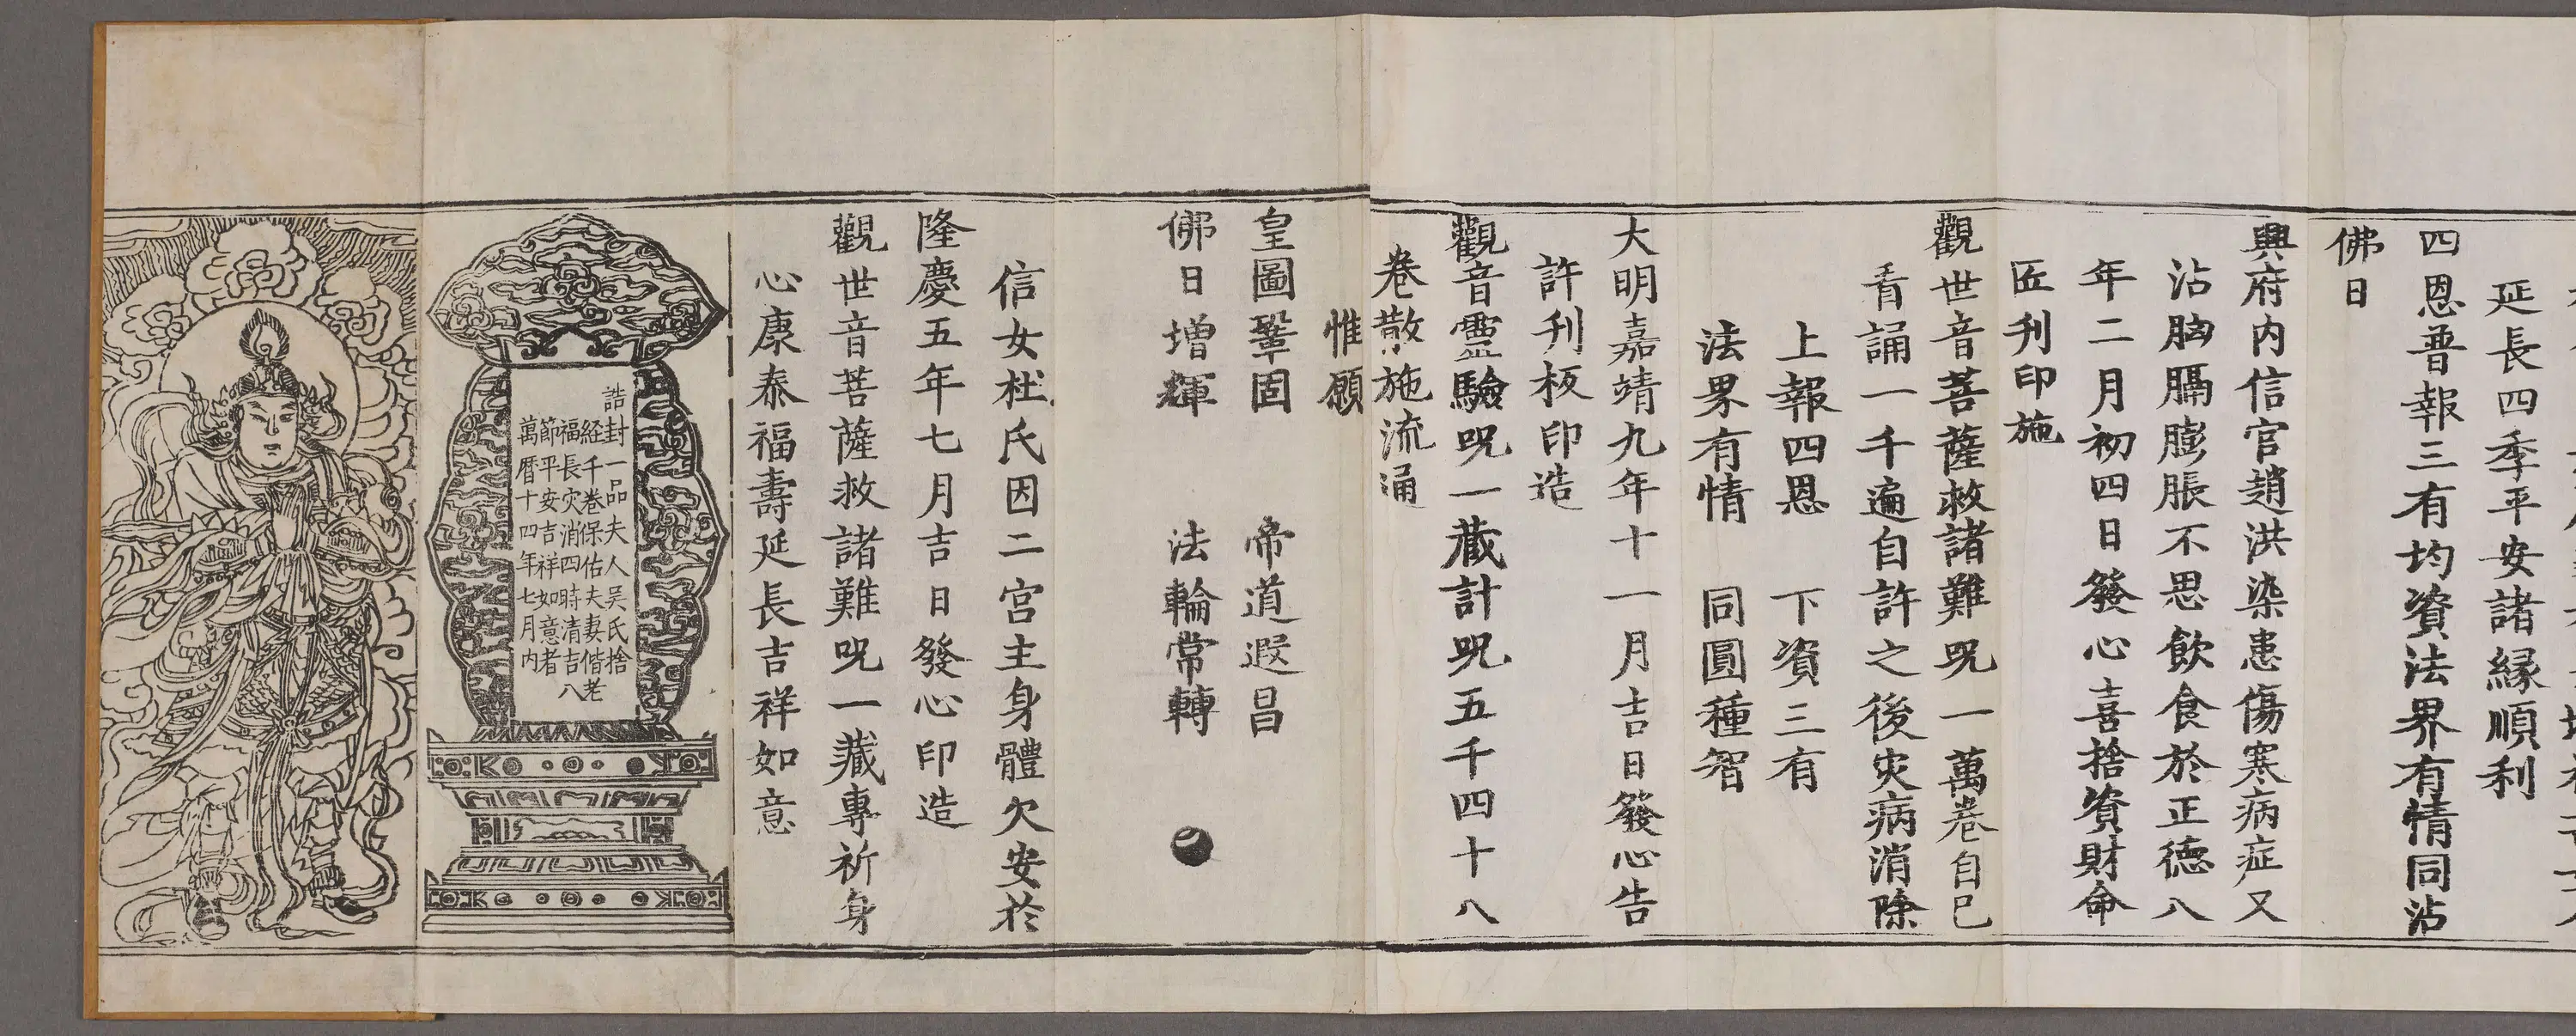 延長四季平安諸緣順利
四恩普報三有均資法界有情同沾
佛日
興府內信官趙洪染患傷寒病症又
沾胸膈膨脹不思飲食於正德八
年二月初四日發心喜捨資財命
匠刊印施
觀世音菩薩救諸難呪一萬卷自己
看誦一千遍自許之後灾病消除
上報四恩 下資三有
法界有情 同圓種智
大明嘉靖九年十一月吉日發心告
許刋板印造
觀音靈驗呪一藏計呪五千四十八
卷散施流通
惟願
皇圖鞏固 帝道遐昌
佛日增輝 法輪常轉
信女杜氏因二宮主身體欠安於
隆慶五年七月吉日發心印造
觀世音菩薩救諸難呪一藏專祈身
心康泰福壽延長吉祥如意
誥封一品夫人吳氏捨
経千卷保佑夫妻偕老
福長灾消四時清吉八
節平安吉祥如意者
萬曆十四年七月內